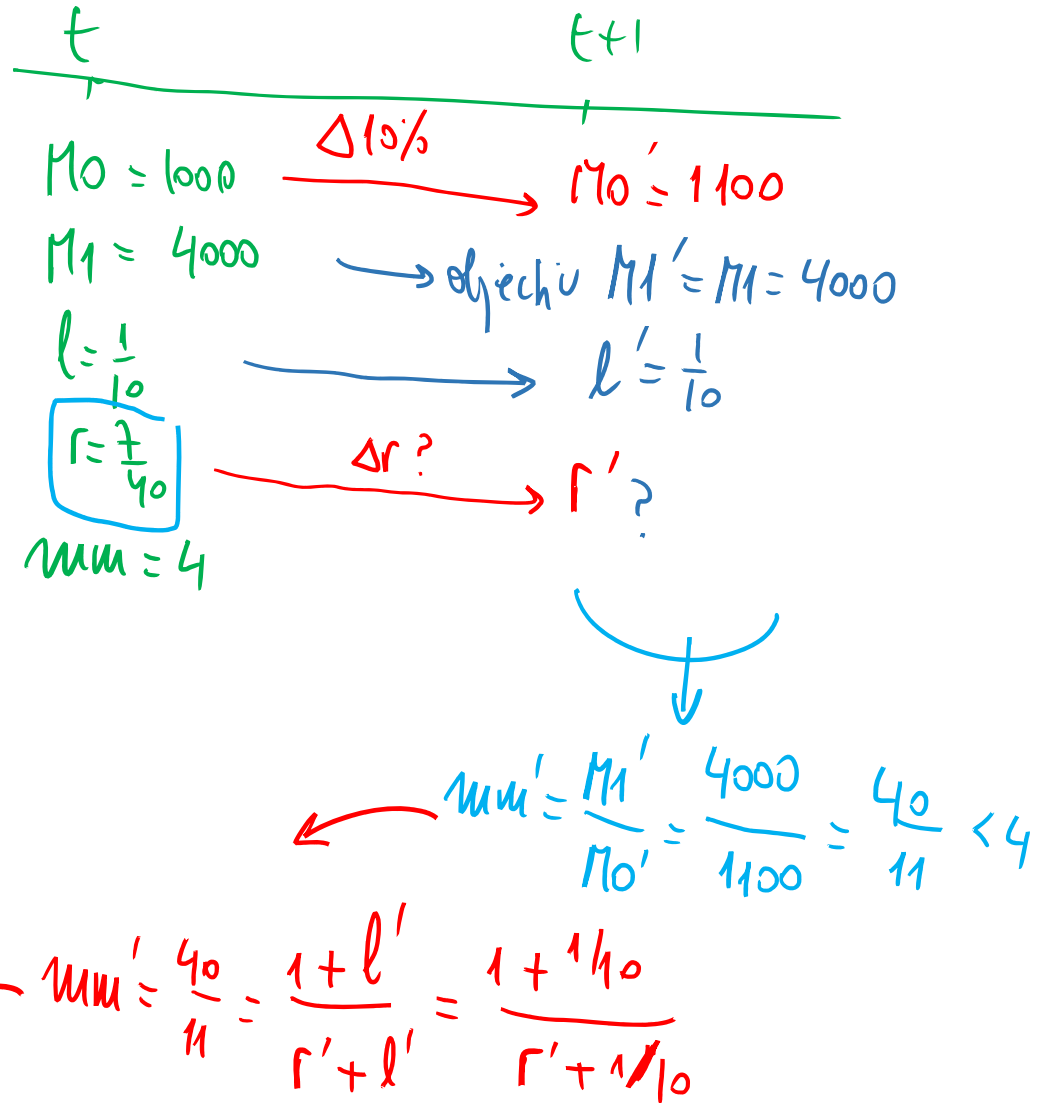 t t+1
M0 = 1000 Δ10% M0' = 1100
M1 = 4000 → obiectiv M1' = M1 = 4000
l = 1/10 → l' = 1/10
r = 7/40 Δr? r' ?
mm = 4
mm' = M1'/M0' = 4000/1100 = 40/11 < 4
mm' = 40/11 = (1 + l')/(r' + l') = (1 + 1/10)/(r' + 1/10)